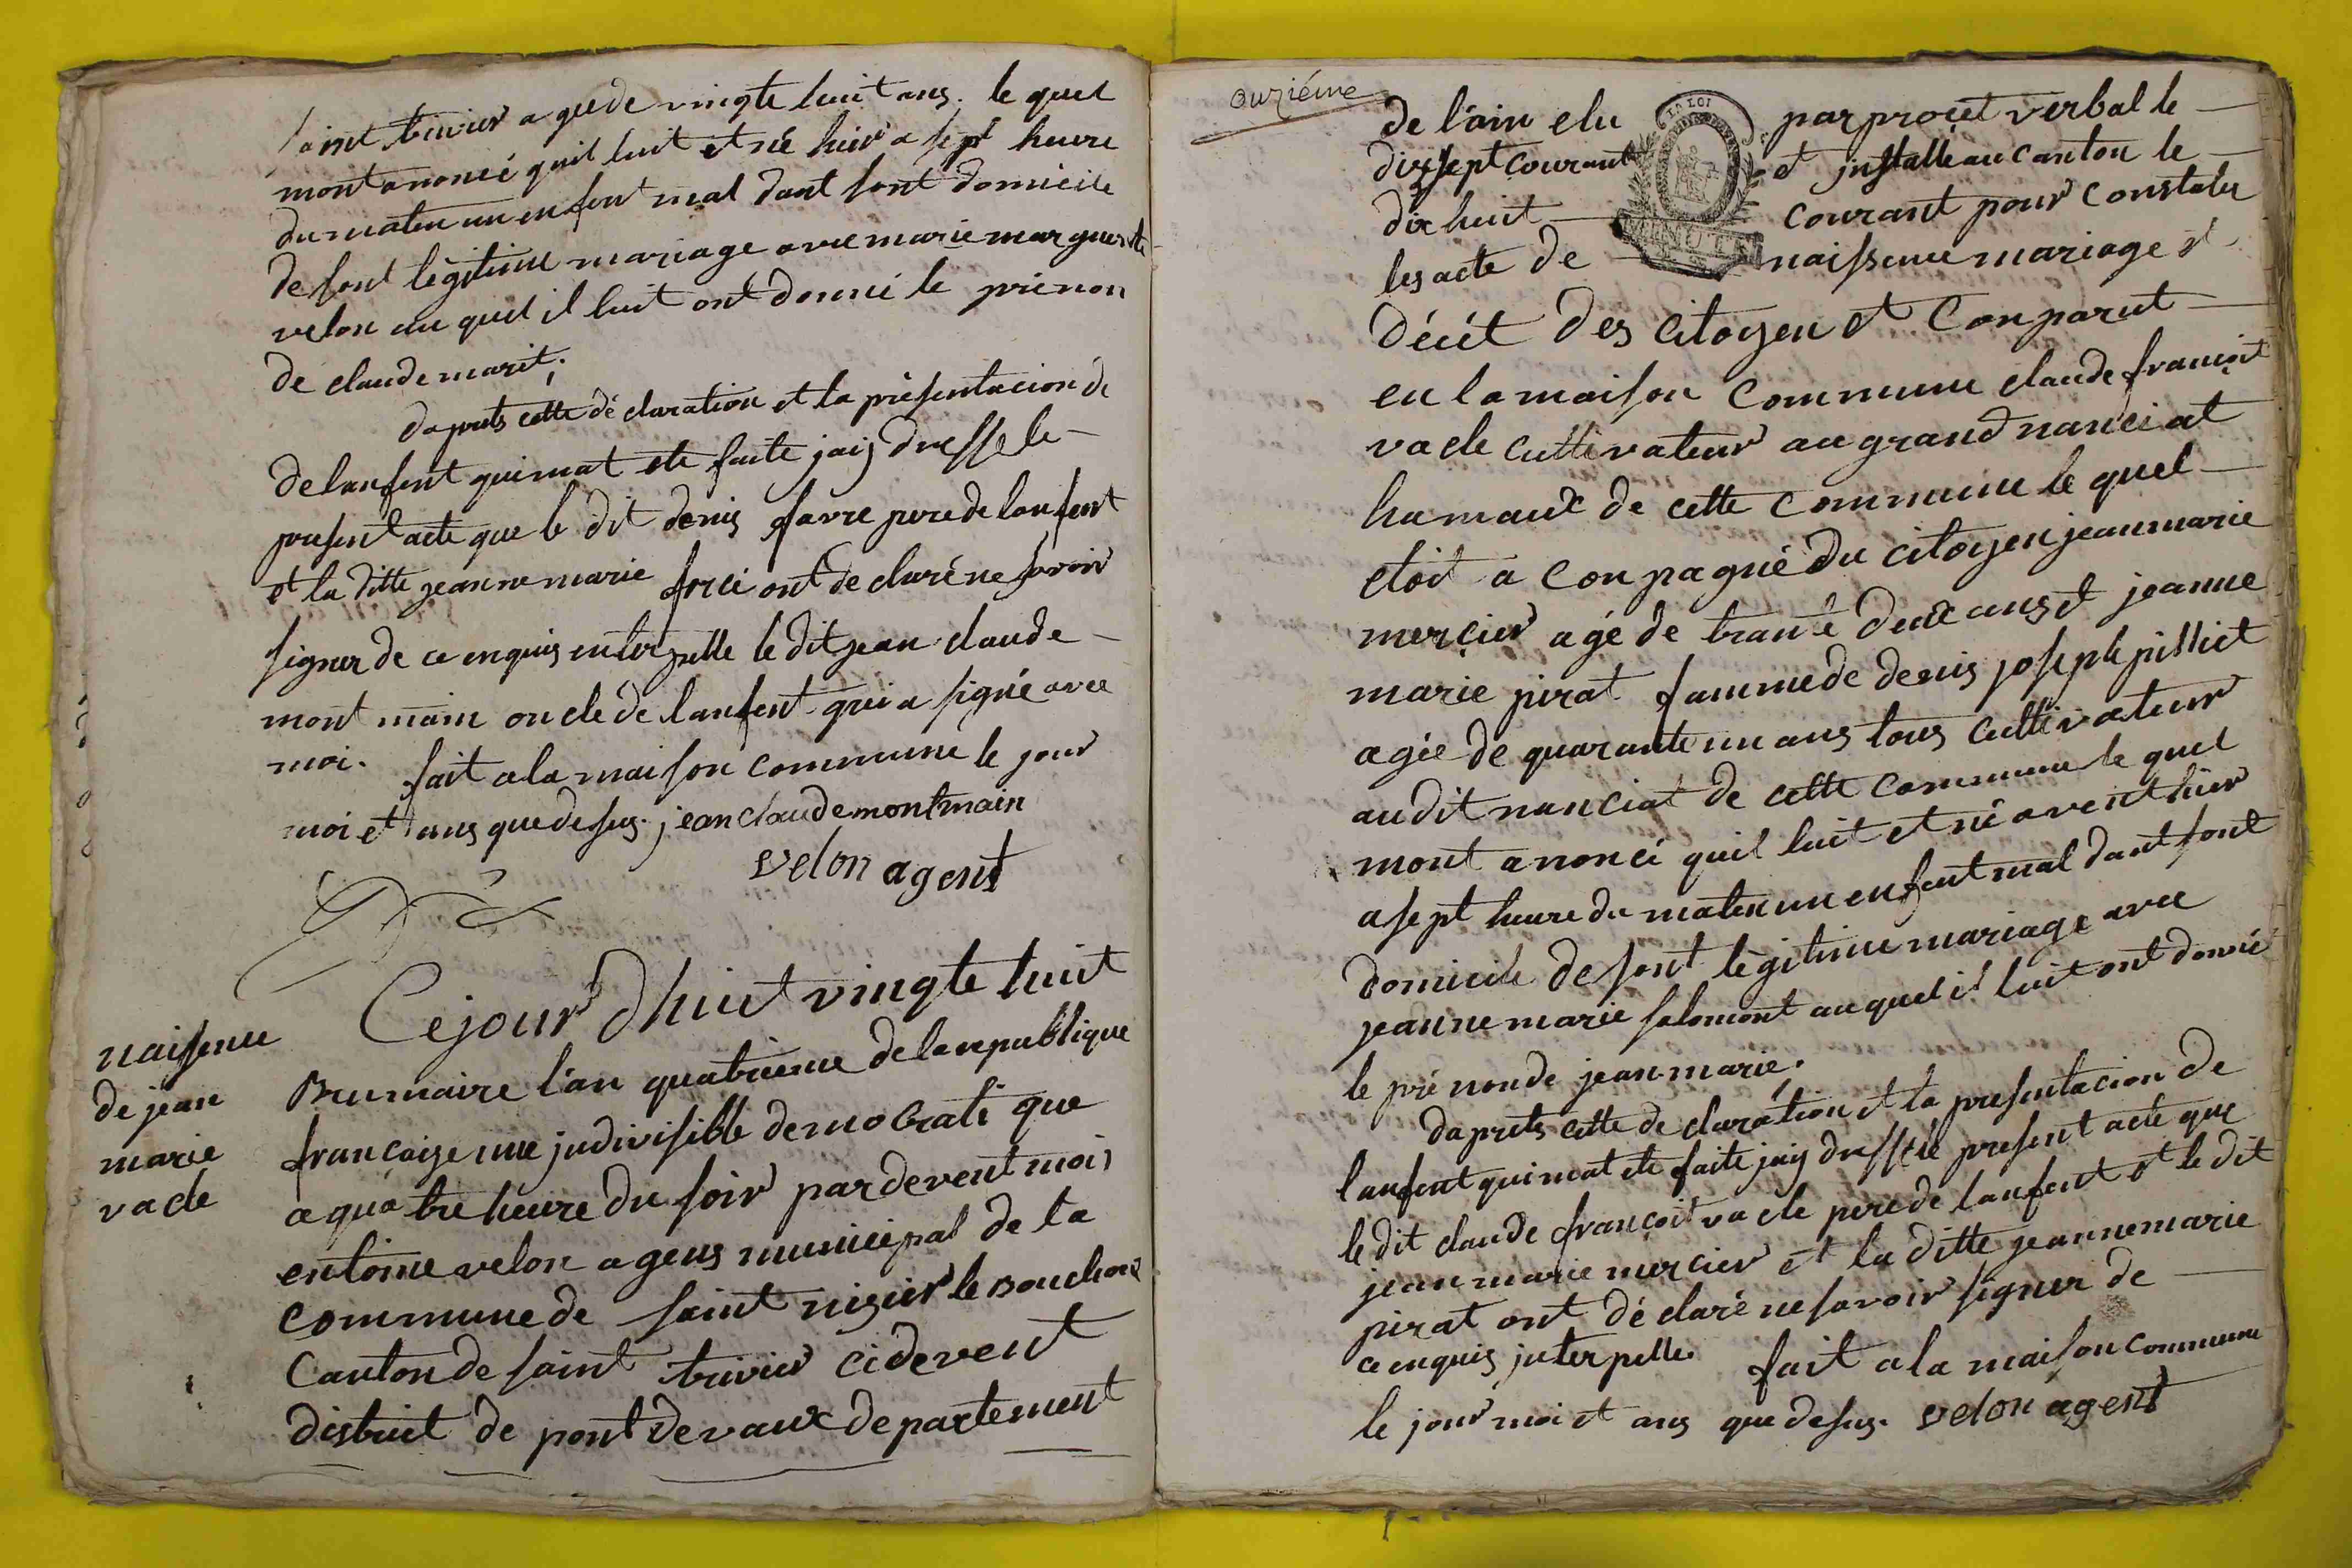 saint trivier agede vingte huit ans. le quel
mont anoncé quil luit et né hier a sept heure
du maten un enfent mal dant sont domicile
de sont légitime mariage avec marie marguerite
velon au quel il luit ont donné le prénon
de claude marit;
daprets cette dé claration et la présentacion de
delanfent quimat ete faite jaij dressele
present acte que le dit denis favre perede lanfent
et la ditte jeanne marie ont declaré ne savoir
signer de ce enquis enterpelle le dit jean claude
mont main oncle de lanfent qui a signé avec
moi. fait ala maison commune le jour
moi et ans que desus. jean claude montmain
velon agent
naissence
de jean
marie
vacle
Cejour dhuit vingte huit
Brumaire l'an quatrieme dela republique
francaize une jndivisible democrati que
a quatre heure du soir par devent moi
entoine velon agens municipal de la
commune de saint nisier le Bouchoux
Canton de saint trivier cidevent
district de pont devaux departement
onziéme
de l'ain elu par procet verbal le
dixsept courant et jnstallé au canton le
dix huit courant pour constater
les acte de naissence mariage et
décét des citoyen et Conparut
en la maison commune claude françoit
vacle cultivateur au grand nanciat
hamaux de cette commune le quel
etoit a conpagné du citoyen jeanmarie
mercier agé de trante deux ans et jeanne
marie pirat famme de denis joseph pilliet
agée de quarante un ans tous cultivateur
audit nanciat de cette commune le quel
mont anoncé quil luit et né avent hier
a sept heure du maten un enfent mal dant sont
domicile de sont légitime mariage avec
jeanne marie salomont au quel il luit ont donné
le pré non de jean marie.
daprets cette de claration et la presentacion de
lanfent quimat ete faite jaij dressé le present acte que
le dit claude françoit vacle pere de lanfent et le dit
jean marie mercier et la ditte jeanne marie
pirat ont dé claré ne savoir signer de
ce enquis jnterpelle. fait a la maison commune
le jour moi et ans que desus. velon agent
LA LOI